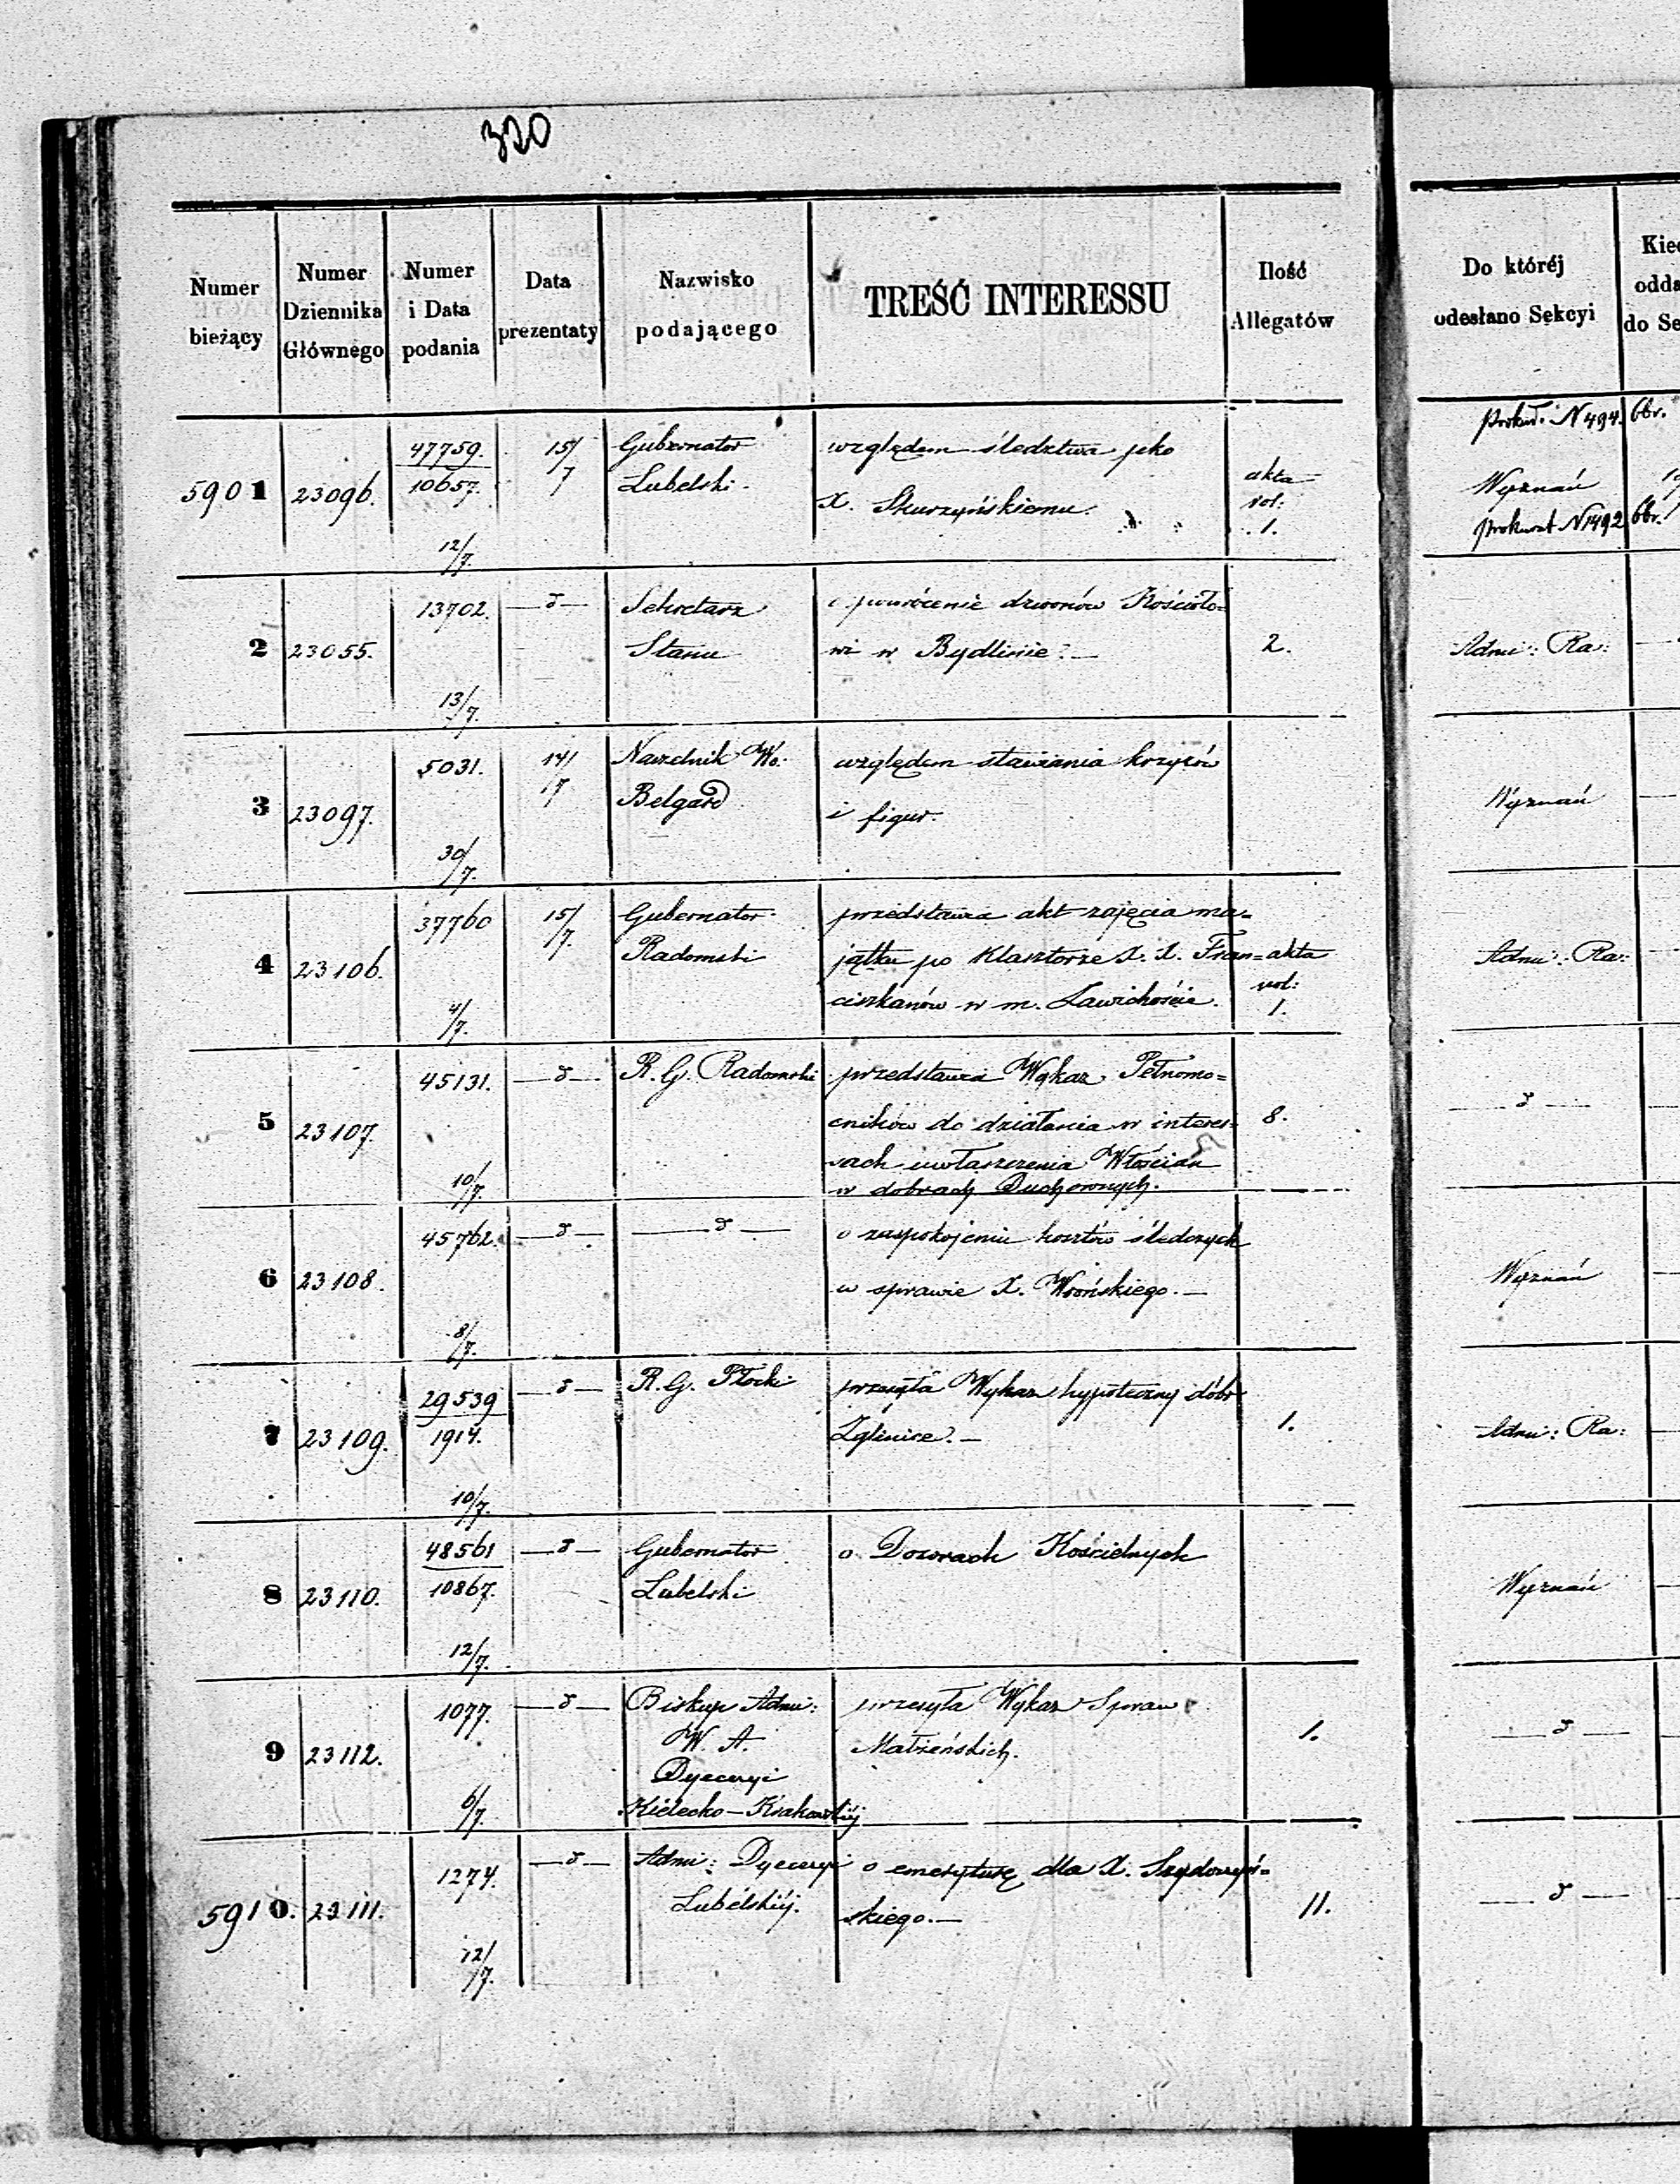 320
Numer bieżący
Numer Dziennika Głównego
Numer i Data podania
Data prezentaty
Nazwisko podającego
TREŚĆ INTERESSU
Ilość Allegatów
Do któréj odesłano Sekcyi
Kie
odda
do Se
Prokur. N 494. 6br.
5901 23096. 47759. 15/7 Gubernator względem śledztwa pko akta
10657. Lubelski X. Skurzyńskiemu. vol: Wyznań
12/7. 1. Prokurat N 1492 6br.
2 23055. 13702. — d — Sekretarz o powrócenie dzwonów Kościoło=
13/7. Stanu wi w Bydlinie. — 2. Adm: Ra:
3 23097. 5031. 14/7 Naczelnik Wo: względem stawiania krzyżów
30/7. Belgard i figur. Wyznań
4 23106. 37760 15/7. Gubernator przedstawia akt zajęcia ma=
Radomski jątku po Klasztorze X. X. Fran= akta Adm: Ra:
4/7. ciszkanów w m. Zawichoście. vol: 1.
5 23107. 45131. — d — R. G. Radomski przedstawia Wykaz Pełnomo=
cników do działania w interes= 8. — d —
sach uwłaszczenia Włościan
10/7. w dobrach Duchownych.
6 23108. 45762. — d — — d — o zaspokojenie kosztów śledczych
8/7. w sprawie X. Wrońskiego. — Wyznań
7 23109. 29539 — d — R. G. Płocki przesyła Wykaz hypoteczny dóbr
1914. Zglinice. — 1. Adm: Ra:
10/7.
8 23110. 48561 — d — Gubernator o Dozorach Kościelnych
10867. Lubelski Wyznań
12/7.
9 23112. 1077. — d — Biskup Adm: przesyła Wykaz Spraw 1. — d —
W. A. Małżeńskich.
Dyecezyi
6/7. Kielecko-Krakowskiéj
5910. 23111. 1274. — d — Adm: Dyecezyi o emeryturę dla X.
Lubelskiéj. skiego. — 11. — d —
12/7.